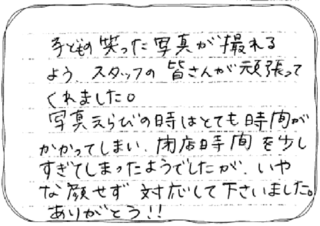 子どもの笑った写真が撮れる
よう、スタッフの皆さんが頑張って
くれました。
写真えらびの時はとても時間が
かかってしまい、閉店時間を少し
すぎてしまったようでしたが、いや
な顔せず対応して下さいました。
ありがとう!!